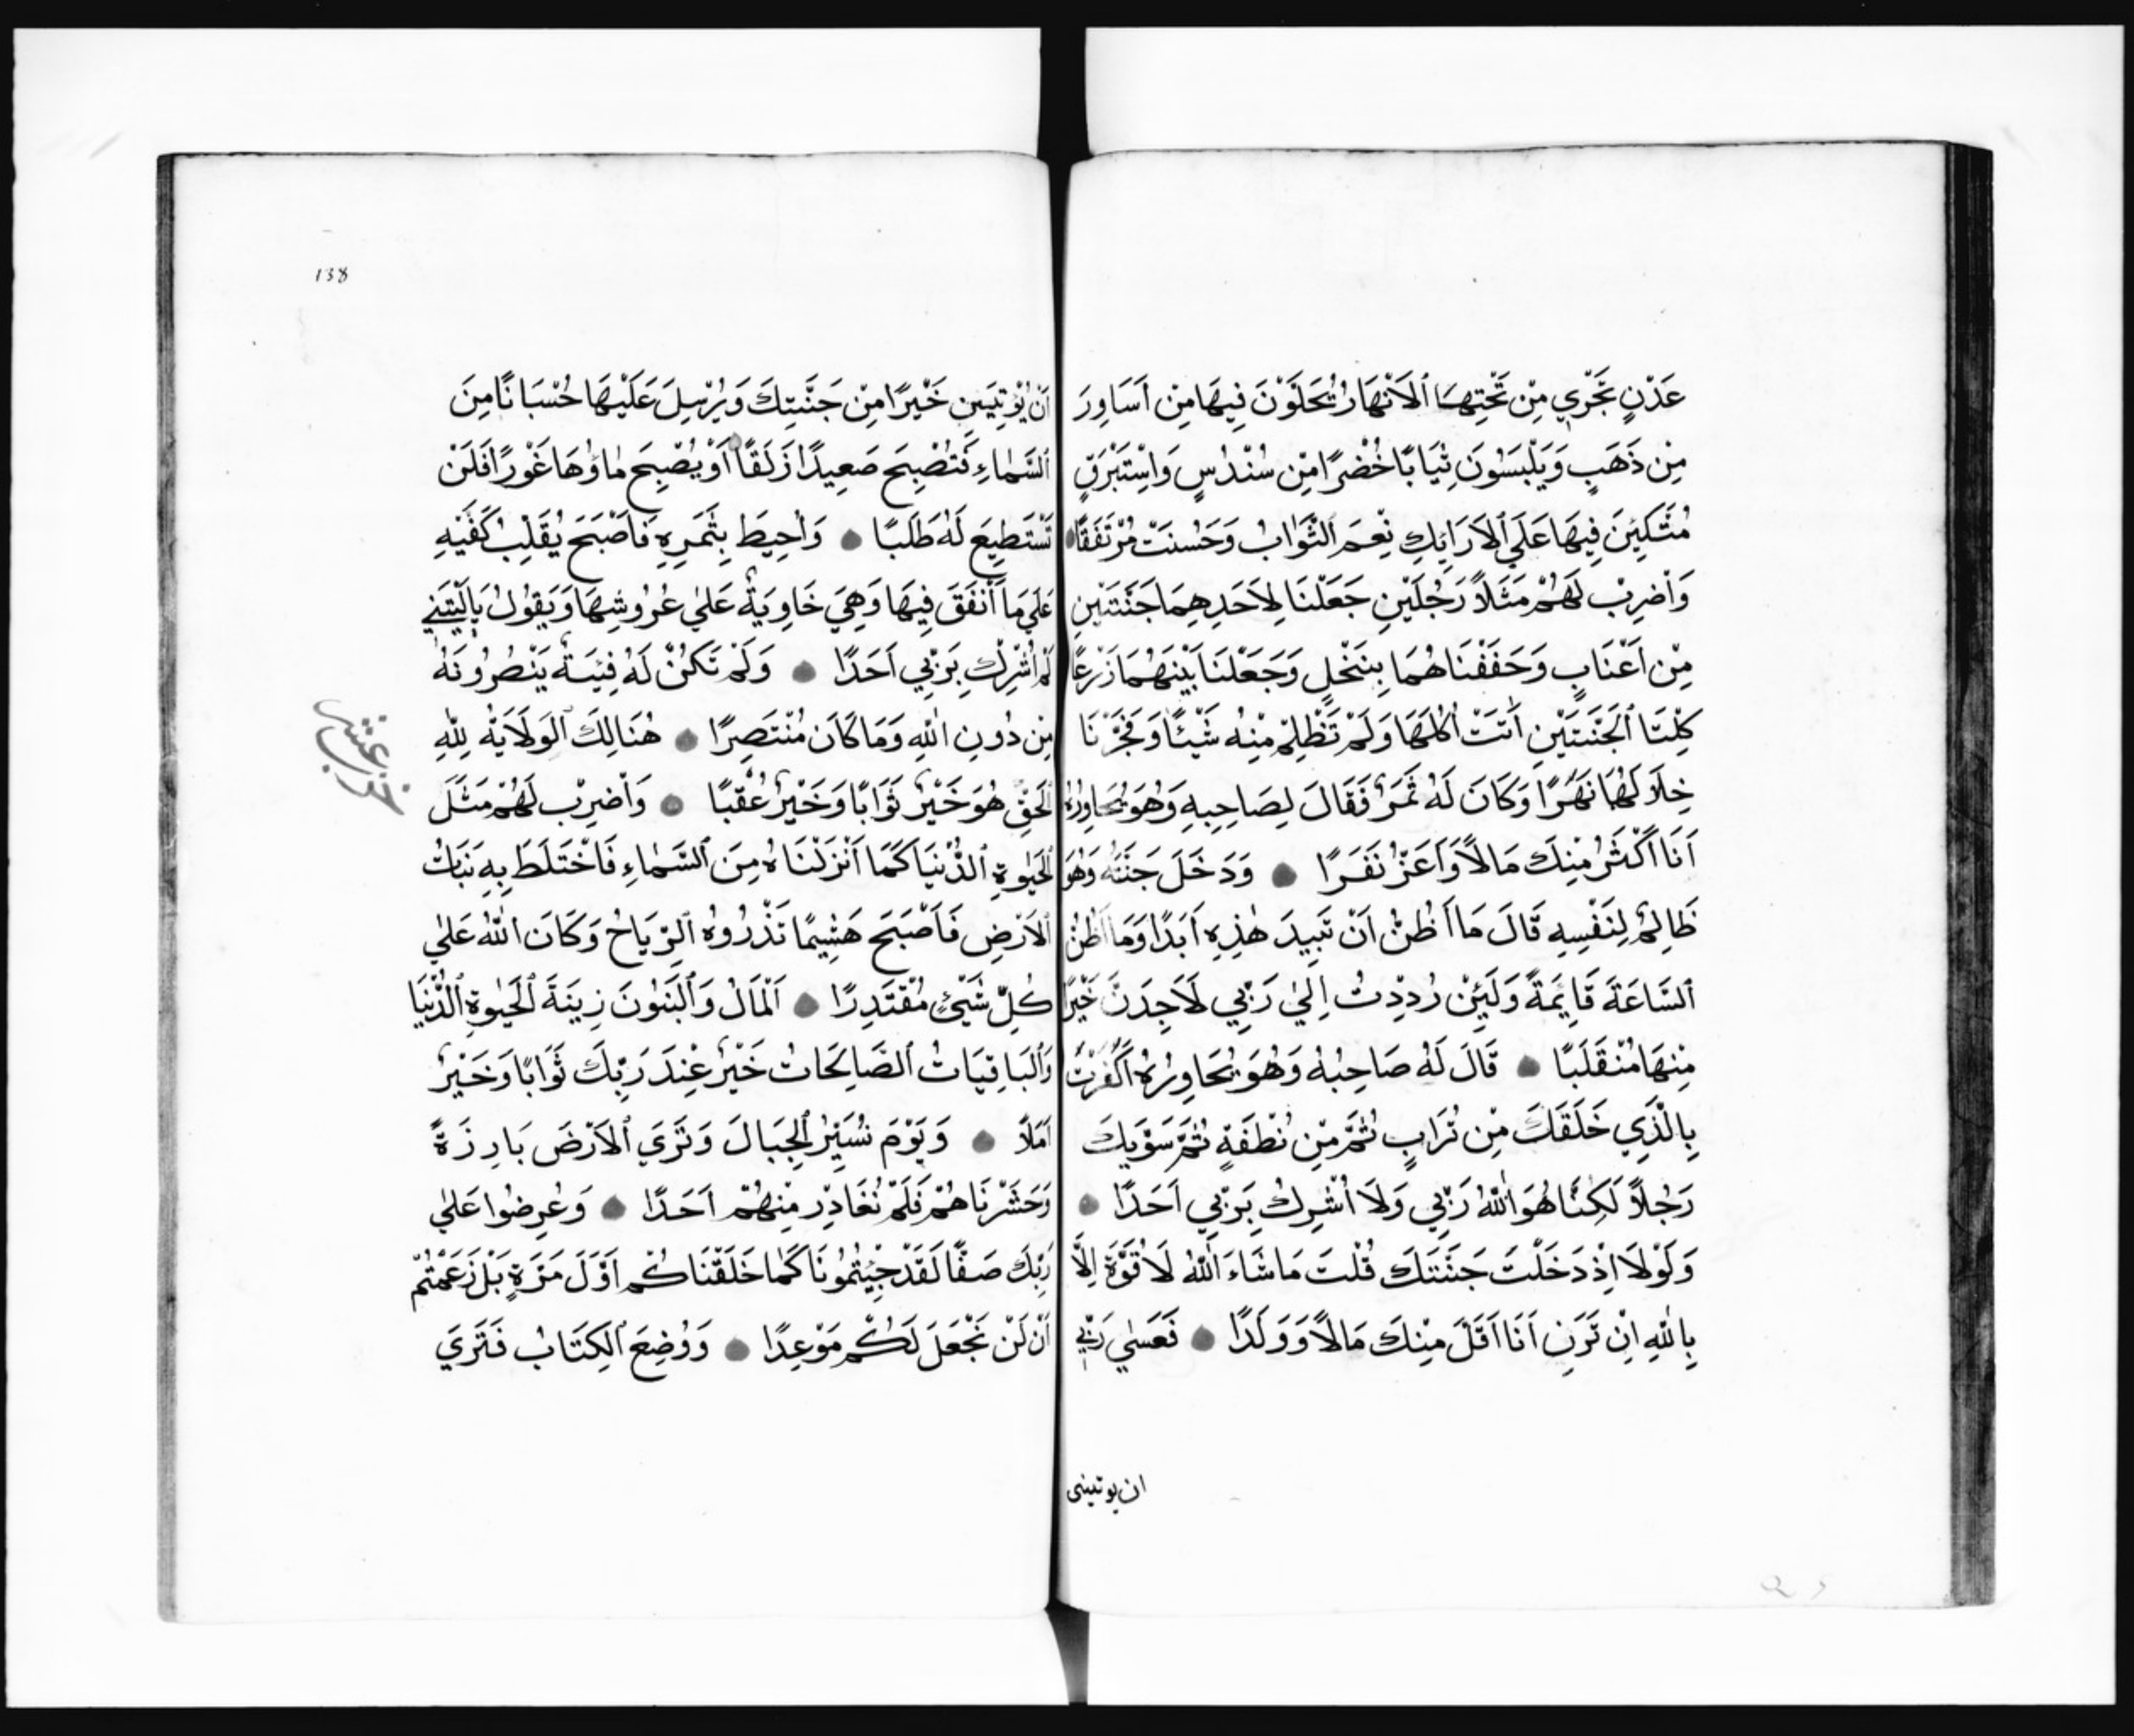 عَدْنٍ تَجْرِي مِنْ تَحْتِهَا ٱلاَنْهَارُ يُحَلَّوْنَ فِيهَا مِنْ اَسَاوِرَ
مِنْ ذَهَبٍ وَيَلْبَسُونَ ثِيَابًا خُضْرًا مِنْ سُنْدُسٍ وَاِسْتَبْرَقٍ
مُتَّكِئِينَ فِيهَا عَلَي ٱلاَرَايِكِ نِعْمَ ٱلثَّوَابُ وَحَسُنَتْ مُرْتَفَقًا
وَٱضْرِبْ لَهُمْ مَثَلاً رَجُلَيْنِ جَعَلْنَا لِاَحَدِهِمَا جَنَّتَيْنِ
مِنْ اَعْنَابٍ وَحَفَفْنَاهُمَا بِنَخْلٍ وَجَعَلْنَا بَيْنَهُمَا زَرْعًا
كِلْتَا ٱلْجَنَّتَيْنِ اٰتَتْ اُكُلَهَا وَلَمْ تَظْلِمْ مِنْهُ شَيْئًا وَفَجَّرْنَا
خِلَالَهُمَا نَهَرًا وَكَانَ لَهُ ثَمَرٌ فَقَالَ لِصَاحِبِهِ وَهُوَ يُحَاوِرُهُ
اَنَا اَكْثَرُ مِنْكَ مَالاً وَاَعَزُّ نَفَرًا وَدَخَلَ جَنَّتَهُ وَهُوَ
ظَالِمٌ لِنَفْسِهِ قَالَ مَا اَظُنُّ اَنْ تَبِيدَ هٰذِهِ اَبَدًا وَمَا اَظُنُّ
ٱلسَّاعَةَ قَايِمَةً وَلَئِنْ رُدِدْتُ اِلٰي رَبِّي لَاَجِدَنَّ خَيْرًا
مِنْهَا مُنْقَلَبًا قَالَ لَهُ صَاحِبُهُ وَهُوَ يُحَاوِرُهُ اَكَفَرْتَ
بِالَّذِي خَلَقَكَ مِنْ تُرَابٍ ثُمَّ مِنْ نُطْفَةٍ ثُمَّ سَوَّيكَ
رَجُلاً لَكِنَّا هُوَ اللّٰهُ رَبِّي وَلَا اُشْرِكُ بِرَبِّي اَحَدًا
وَلَوْلَا اِذْ دَخَلْتَ جَنَّتَكَ قُلْتَ مَا شَاءَ ٱللّٰهُ لَا قُوَّةَ اِلَّا
بِاللّٰهِ اِنْ تَرَنِ اَنَا اَقَلَّ مِنْكَ مَالاً وَوَلَدًا فَعَسٰي رَبِّي
ان يوتينى
138
اَنْ يُؤْتِيَنِ خَيْرًا مِنْ جَنَّتِكَ وَيُرْسِلَ عَلَيْهَا حُسْبَانًا مِنَ
ٱلسَّمَاءِ فَتُصْبِحَ صَعِيدًا زَلَقًا اَوْ يُصْبِحَ مَاوُهَا غَوْرًا فَلَنْ
تَسْتَطِيعَ لَهُ طَلَبًا وَاُحِيطَ بِثَمَرِهِ فَاَصْبَحَ يُقَلِّبُ كَفَّيْهِ
عَلَي مَا اَنْفَقَ فِيهَا وَهِيَ خَاوِيَةٌ عَلٰي عُرُوشِهَا وَيَقُولُ يَالَيْتَنِي
لَمْ اُشْرِكْ بِرَبِّي اَحَدًا وَلَمْ تَكُنْ لَهُ فِيَةٌ يَنْصُرُونَهُ
مِنْ دُونِ اللّٰهِ وَمَا كَانَ مُنْتَصِرًا هُنَالِكَ ٱلْوَلَايَةُ لِلّٰهِ
ٱلْحَقِّ هُوَ خَيْرٌ ثَوَابًا وَخَيْرٌ عُقْبًا وَٱضْرِبْ لَهُمْ مَثَلَ
ٱلْحَيٰوةِ ٱلدُّنْيَا كَمَا اَنْزَلْنَاهُ مِنَ ٱلسَّمَاءِ فَاخْتَلَطَ بِهِ نَبَاتُ
ٱلاَرْضِ فَاَصْبَحَ هَشِيمًا تَذْرُوهُ ٱلرِّيَاحُ وَكَانَ اللّٰهُ عَلٰي
كُلِّ شَيْئٍ مُقْتَدِرًا اَلْمَالُ وَٱلْبَنُونَ زِينَةُ ٱلْحَيٰوةِ ٱلدُّنْيَا
وَٱلْبَاقِيَاتُ ٱلصَّالِحَاتُ خَيْرٌ عِنْدَ رَبِّكَ ثَوَابًا وَخَيْرٌ
اَمَلاً وَيَوْمَ نُسَيِّرُ ٱلْجِبَالَ وَتَرَي ٱلاَرْضَ بَارِزَةً
وَحَشَرْنَاهُمْ فَلَمْ نُغَادِرْ مِنْهُمْ اَحَدًا وَعُرِضُوا عَلٰي
رَبِّكَ صَفًّا لَقَدْ جِيْتُمُونَا كَمَا خَلَقْنَاكُمْ اَوَّلَ مَرَّةٍ بَلْ زَعَمْتُمْ
اَنْ لَنْ نَجْعَلَ لَكُمْ مَوْعِدًا وَوُضِعَ ٱلْكِتَابُ فَتَرَي